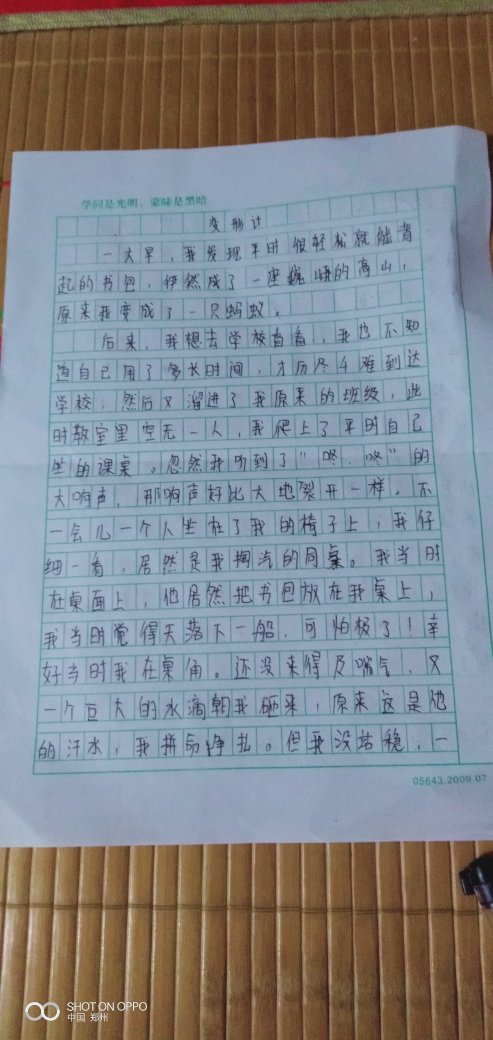 学问是光明，蒙昧是黑暗
变形计
一大早，我发现平时很轻松就能背
起的书包，俨然成了一座巍峨的高山，
原来我变成了一只蚂蚁。
后来，我想去学校看看，我也不知
道自己用了多长时间，才历尽千难到达
学校，然后又溜进了我原来的班级，此
时教室里空无一人，我爬上了平时自己
坐的课桌。忽然我听到了"咚，咚"的
大响声，那响声好比大地裂开一样。不
一会儿一个人坐在了我的椅子上，我仔
细一看，居然是我的同桌。我当时
在桌面上，他居然把书包放在我桌上，
我当时觉得天落下一船，可怕极了！幸
好当时我在桌角。还没来得及喘气，又
一个巨大的水滴朝我砸来，原来这是他
的汗水，我拼命挣扎。但我没站稳，一
05643.2009.07
SHOT ON OPPO
中国 郑州